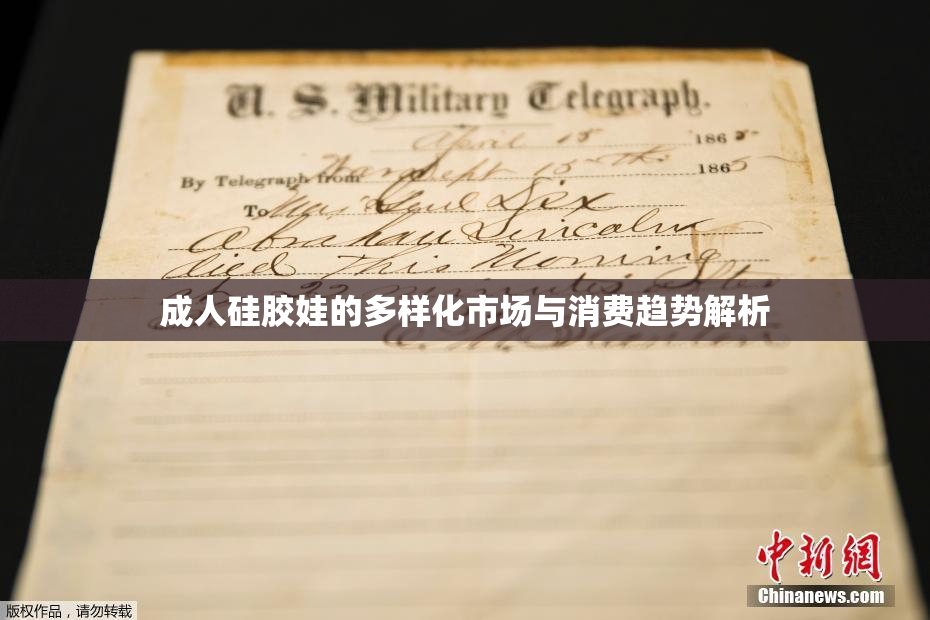 U. S. Military Telegraph.
April 15 1865
By Telegraph from War Dept 15th 1865
To Maj Genl Dix
Abraham Lincoln
died This Morning
at 22 minutes after
成人硅胶娃的多样化市场与消费趋势解析
E. M. Stanton
中新網
Chinanews.com
版权作品,请勿转载